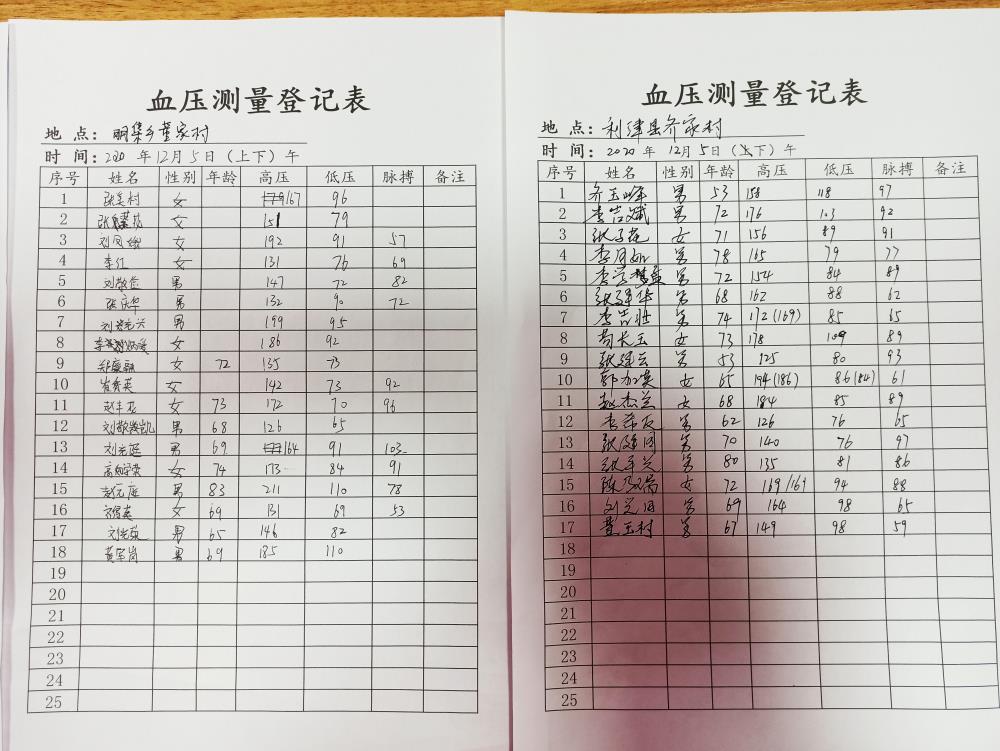 血压测量登记表
地 点：明集乡董家村
时 间：2020 年 12月 5日（上下）午
序号 姓名 性别 年龄 高压 低压 脉搏 备注
1 女 167 96
2 女 151 79
3 刘凤娥 女 192 91 57
4 李红 女 131 76 69
5 男 147 72 82
6 张庆华 男 132 90 72
7 男 199 95
8 女 186 92
9 女 72 135 73
10 崔秀英 女 142 73 92
11 女 73 172 70 96
12 男 68 126 65
13 男 69 164 91 103
14 女 74 173 84 91
15 男 83 211 110 78
16 女 69 131 69 53
17 男 65 146 82
18 男 69 185 110
19
20
21
22
23
24
25
血压测量登记表
地 点：利津县齐家村
时 间：2020 年 12月 5日（上下）午
序号 姓名 性别 年龄 高压 低压 脉搏 备注
1 齐玉峰 男 53 158 118 97
2 李吉斌 男 72 176 103 92
3 张子花 女 71 156 89 91
4 李月如 男 78 165 79 77
5 男 72 154 84 89
6 男 68 162 88 62
7 李吉胜 男 74 172(169) 85 65
8 女 73 178 109 89
9 男 53 125 80 93
10 郭加英 女 65 194(186) 86(84) 61
11 赵杰兰 女 68 184 85 89
12 男 62 126 76 65
13 男 70 140 76 97
14 男 80 135 81 86
15 女 72 169/169 94 88
16 69 164 98 65
17 董玉村 男 67 149 98 59
18
19
20
21
22
23
24
25